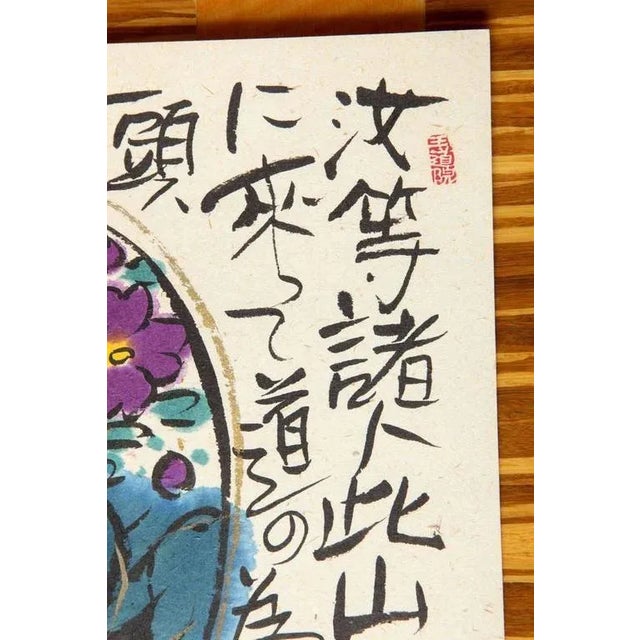 汝等諸人此山
に来って道の為
頭